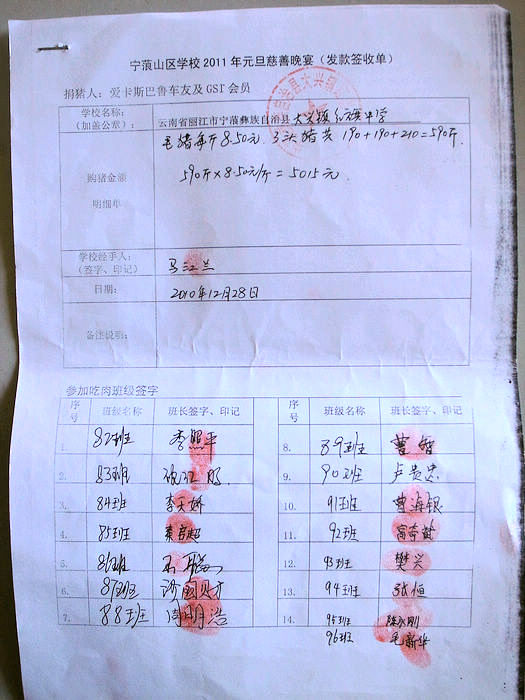 宁蒗山区学校2011年元旦慈善晚宴(发款签收单)
捐猪人:爱卡斯巴鲁车友及GST会员
学校名称:
(加盖公章): 云南省丽江市宁蒗彝族自治县大兴镇红旗中学
毛猪每斤8.50元 3头猪共190+190+210=590斤.
购猪金额
590斤×8.50元/斤=5015元.
明细单
学校经手人:
(签字、印记) 马江兰
日期: 2010年12月28日
备注说明:
参加吃肉班级签字
序号 班级名称 班长签字、印记 序号 班级名称 班长签字、印记
1. 82班 李照平 8. 89班 曹智
2. 83班 9. 90班 卢贵忠
3. 84班 李天娇 10. 91班 曹海银
4. 85班 11. 92班
5. 86班 12. 93班 樊兴
6. 87班 13. 94班 张恒
7. 88班 周明浩 14. 95班 陈永刚
96班 毛新华